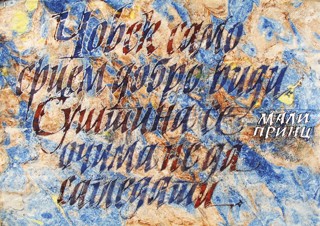 Човек само
срцем добро види
Суштина се
очима не да
сагледати
МАЛИ
ПРИНЦ